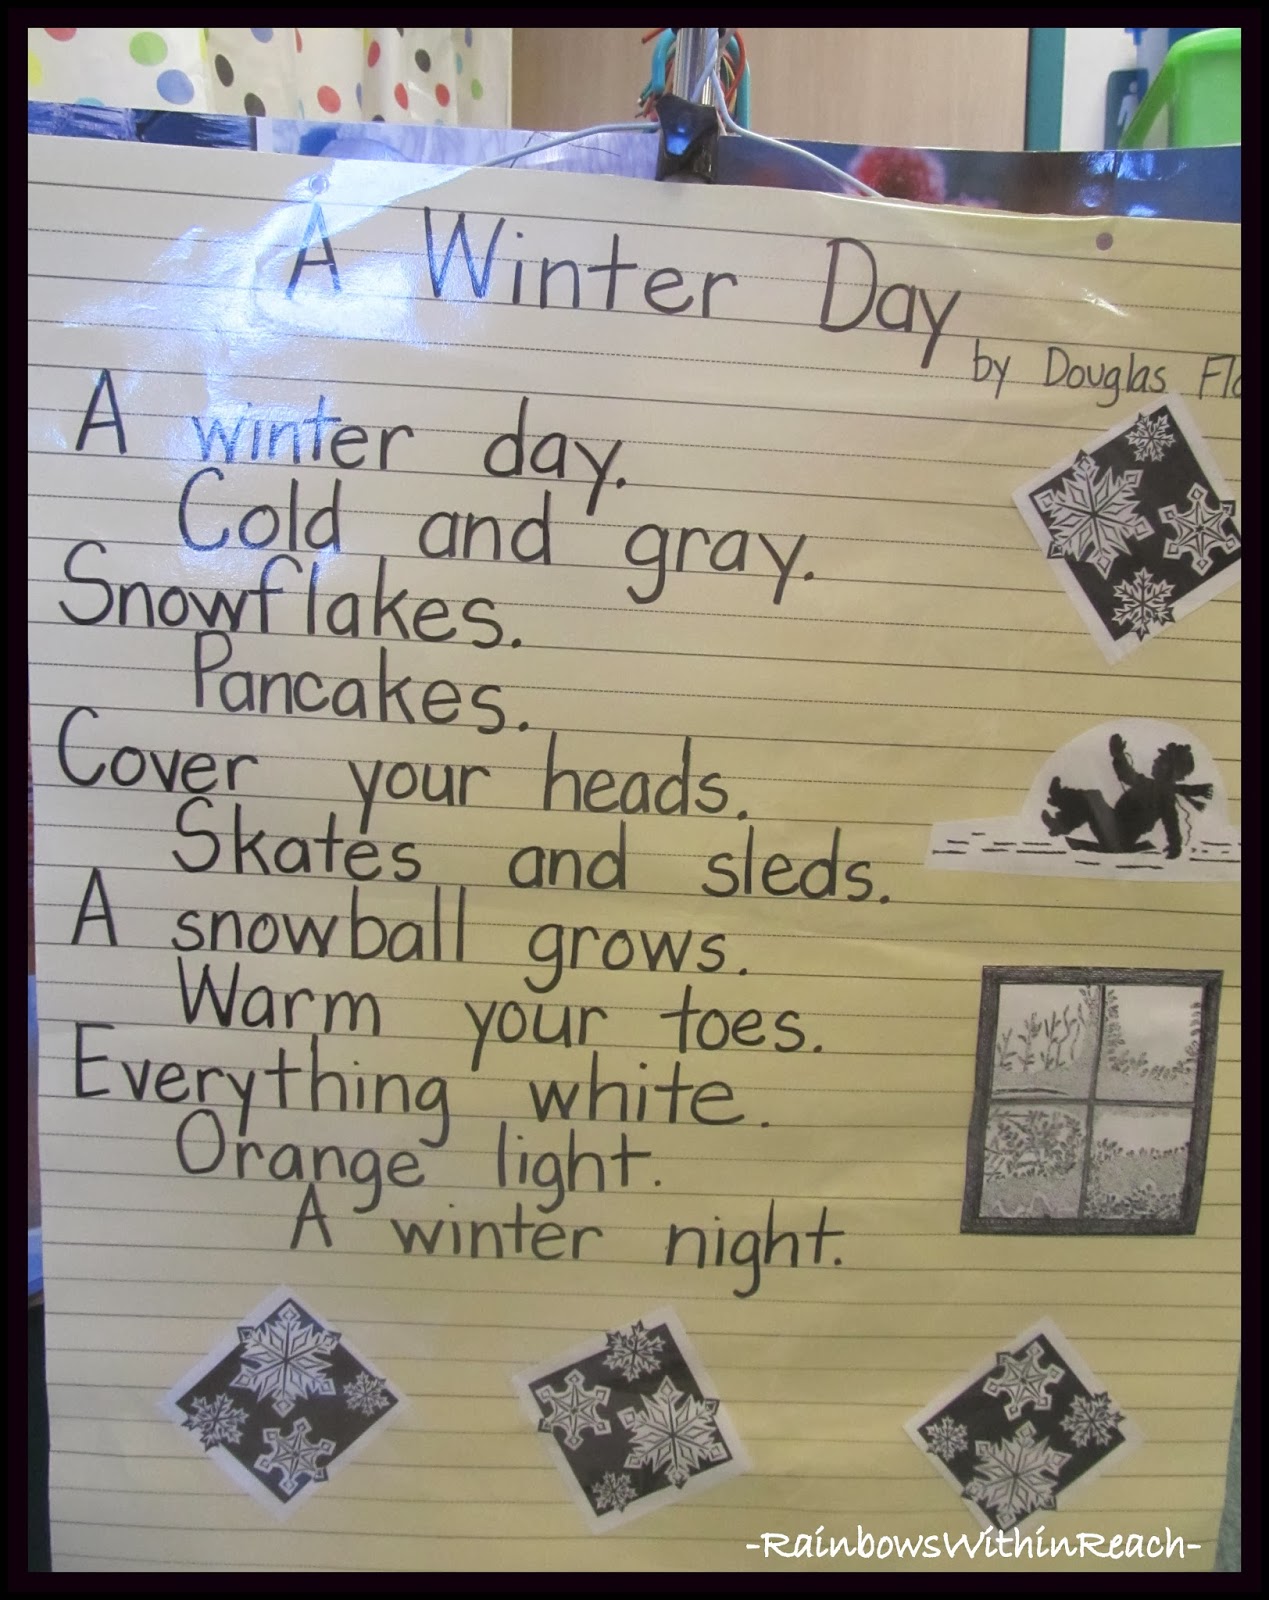 A Winter Day
by Douglas
A winter day.
Cold and gray.
Snowflakes.
Pancakes.
Cover your heads.
Skates and sleds.
A snowball grows.
Warm your toes.
Everything white.
Orange light.
A winter night.
-RainbowsWithinReach-